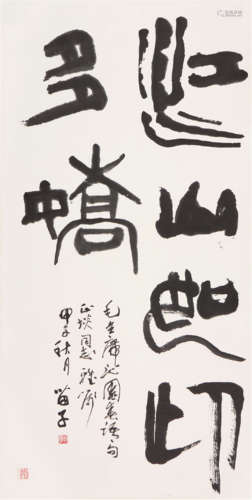 江山如此
多嬌
毛主席沁園春語句
同志雅屬
甲子秋月 苗子